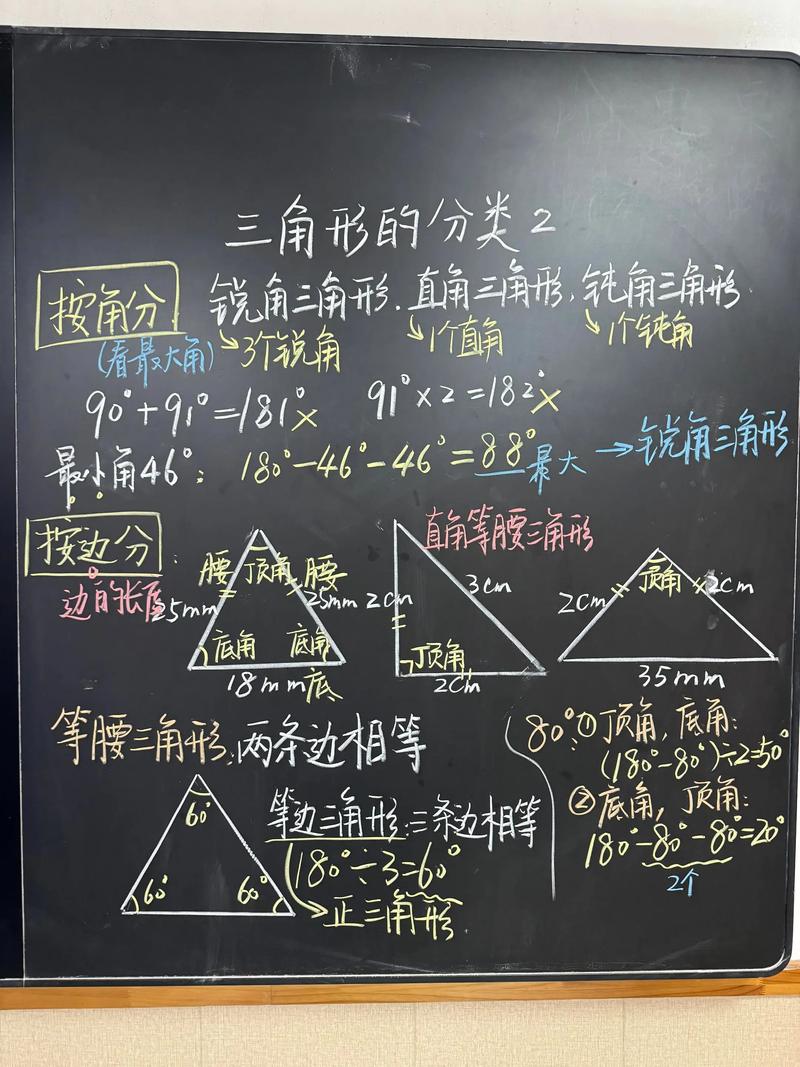 三角形的分类2
按角分 锐角三角形.直角三角形,钝角三角形
(看最大角) 3个锐角 1个直角 1个钝角
90°+91°=181°× 91°×2=182°×
最小角46°: 180°-46°-46°=88°最大→锐角三角形
按边分:
边的长度
腰 顶角 腰
25mm 25mm
底角 底角
18mm底
直角等腰三角形
2cm 3cm
顶角
2cm
顶角
2cm 2cm
35mm
等腰三角形:两条边相等
80°:①顶角,底角:
(180°-80°)÷2=50°
②底角,顶角:
180°-80°-80°=20°
2个
60°
60° 60°
等边三角形:三条边相等
180°÷3=60°
正三角形